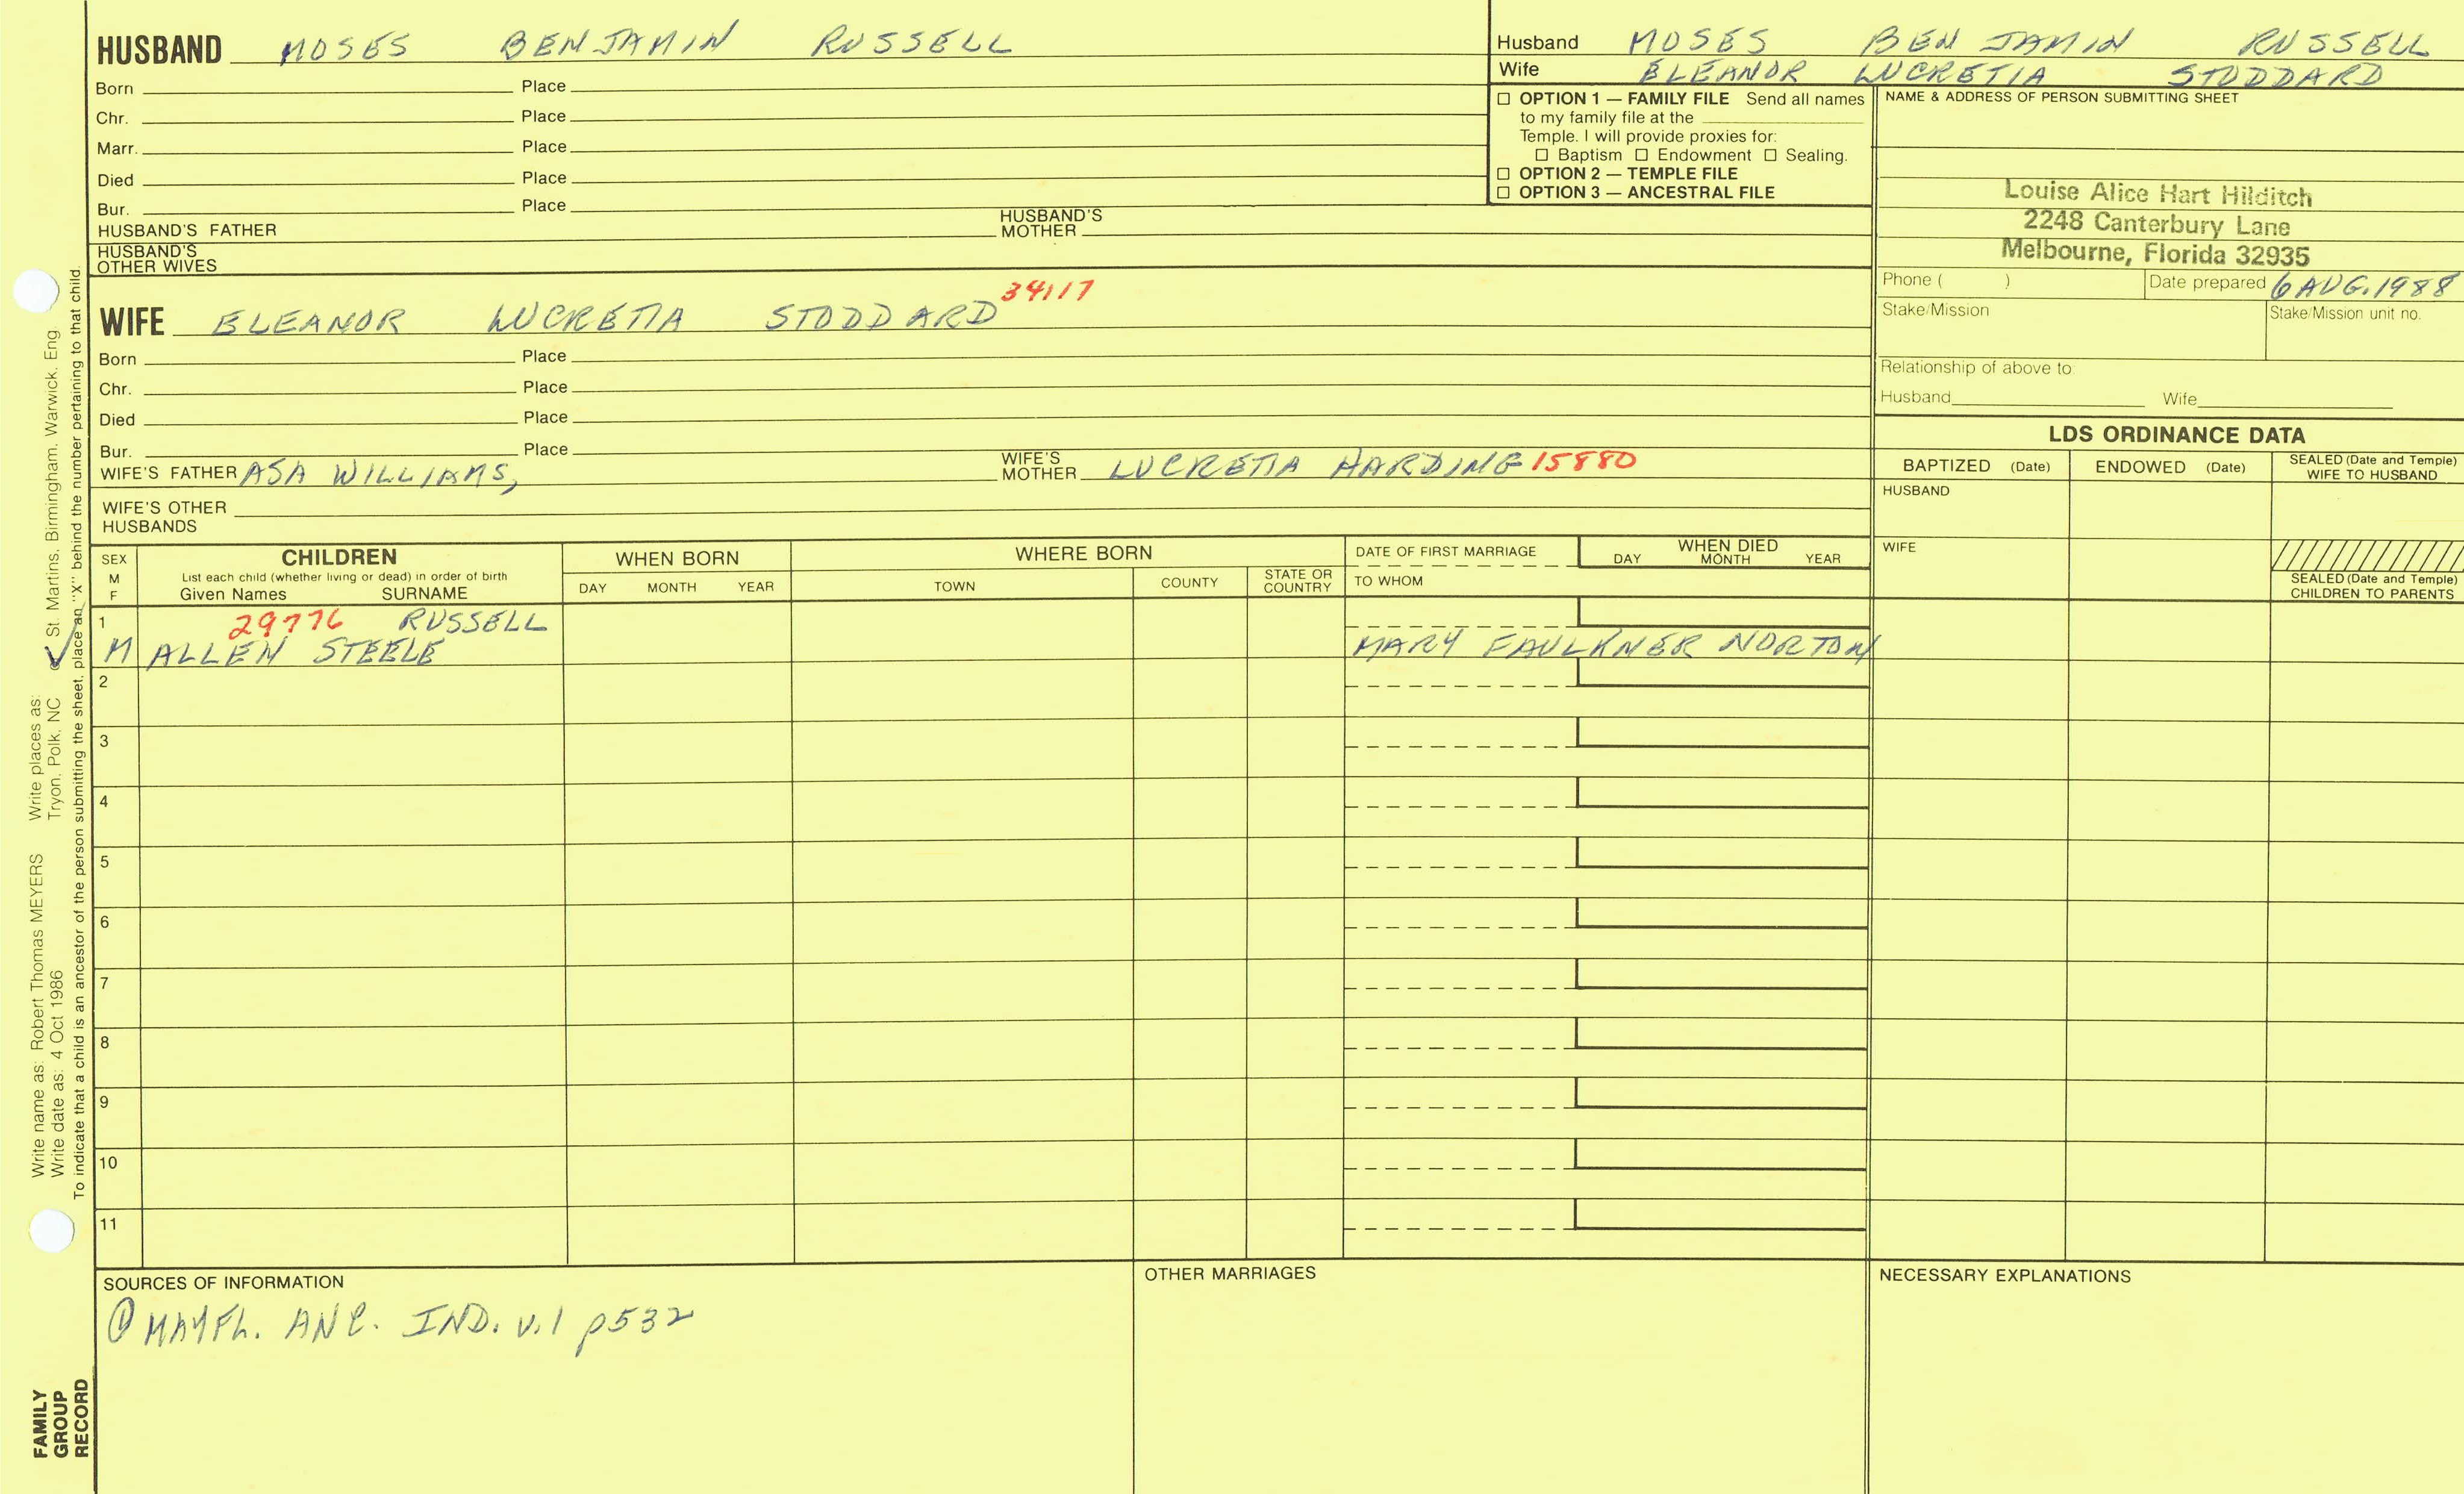 HUSBAND MOSES BENJAMIN RUSSELL
Born Place
Chr. Place
Marr. Place
Died Place
Bur. Place
HUSBAND'S FATHER HUSBAND'S MOTHER
HUSBAND'S OTHER WIVES
Husband MOSES BENJAMIN RUSSELL
Wife ELEANOR LUCRETIA STODDARD
☐ OPTION 1 — FAMILY FILE Send all names
to my family file at the
Temple. I will provide proxies for:
☐ Baptism ☐ Endowment ☐ Sealing.
☐ OPTION 2 — TEMPLE FILE
☐ OPTION 3 — ANCESTRAL FILE
NAME & ADDRESS OF PERSON SUBMITTING SHEET
Louise Alice Hart Hilditch
2248 Canterbury Lane
Melbourne, Florida 32935
Phone ( ) Date prepared 6 AUG. 1988
Stake/Mission Stake/Mission unit no.
Relationship of above to:
Husband Wife
WIFE ELEANOR LUCRETIA STODDARD 34117
Born Place
Chr. Place
Died Place
Bur. Place
WIFE'S FATHER ASA WILLIAMS, WIFE'S MOTHER LUCRETIA HARDING 15880
WIFE'S OTHER
HUSBANDS
LDS ORDINANCE DATA
BAPTIZED (Date) ENDOWED (Date) SEALED (Date and Temple) WIFE TO HUSBAND
HUSBAND
WIFE
SEALED (Date and Temple) CHILDREN TO PARENTS
SEX M F
CHILDREN
List each child (whether living or dead) in order of birth
Given Names SURNAME
WHEN BORN
DAY MONTH YEAR
WHERE BORN
TOWN COUNTY STATE OR COUNTRY
DATE OF FIRST MARRIAGE
TO WHOM
WHEN DIED
DAY MONTH YEAR
1 29776 RUSSELL
M ALLEN STEELE MARY FAULKNER NORTON
2
3
4
5
6
7
8
9
10
11
SOURCES OF INFORMATION
① MAYFL. ANC. IND. V.1 p532
OTHER MARRIAGES
NECESSARY EXPLANATIONS
Write name as: Robert Thomas MEYERS Write places as:
Write date as: 4 Oct 1986 Tryon, Polk, NC St. Martins, Birmingham, Warwick, Eng
To indicate that a child is an ancestor of the person submitting the sheet, place an "X" behind the number pertaining to that child.
FAMILY
GROUP
RECORD